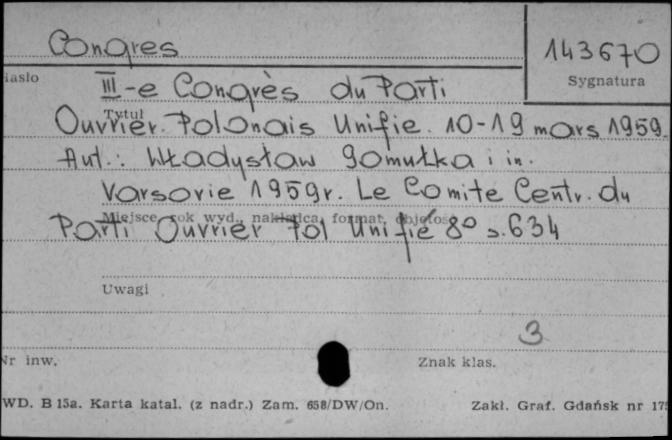 Congres
143670
iasło
Sygnatura
III-e Congrès du Parti
Tytuł
Ouvrier. Polonais Unifie. 10-19 mars 1959.
Aut.: Władysław Gomułka i in.
Varsovie 1959r. Le Comite Centr. du
Miejsce, rok wyd., nakładca, format, objętość
Parti Ouvrier Pol Unifié 8° s. 634
Uwagi
3
Nr inw.
Znak klas.
WD. B 15a. Karta katal. (z nadr.) Zam. 658/DW/On.
Zakł. Graf. Gdańsk nr 175